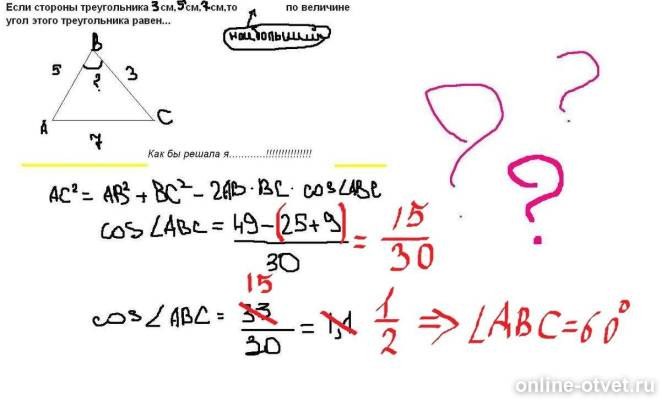 Если стороны треугольника 3см,5см,7см,то наибольший по величине
угол этого треугольника равен...
B
5 ? 3
A C
7
Как бы решала я............!!!!!!!!!!!!!!!
AC² = AB² + BC² - 2AB · BC · cos∠ABC
cos∠ABC = 49-(25+9)/30 = 15/30
15
cos∠ABC = 33/30 = 1,1 1/2 ⇒ ∠ABC=60°
? ? ?
online-otvet.ru